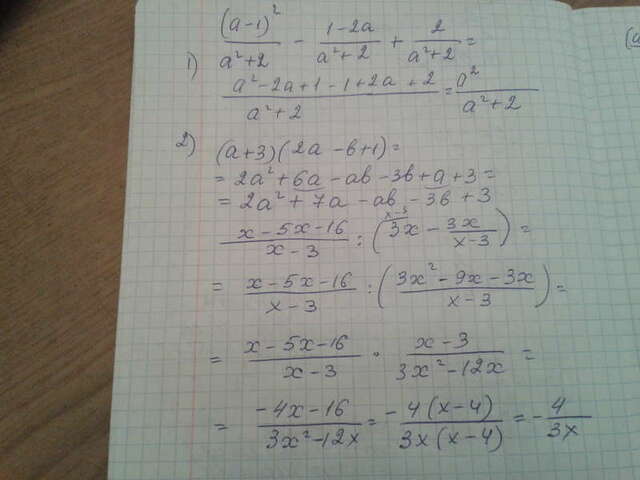 1) (a-1)²/(a²+2) - (1-2a)/(a²+2) + 2/(a²+2) =
(a²-2a+1-1+2a+2)/(a²+2) = a²/(a²+2)
2) (a+3)(2a-b+1)=
= 2a²+6a-ab-3b+a+3=
= 2a²+7a-ab-3b+3
(x-5x-16)/(x-3) : (3x^(x-3) - 3x/(x-3)) =
= (x-5x-16)/(x-3) : ((3x²-9x-3x)/(x-3)) =
= (x-5x-16)/(x-3) · (x-3)/(3x²-12x) =
= (-4x-16)/(3x²-12x) = -4(x-4)/(3x(x-4)) = -4/(3x)
(a